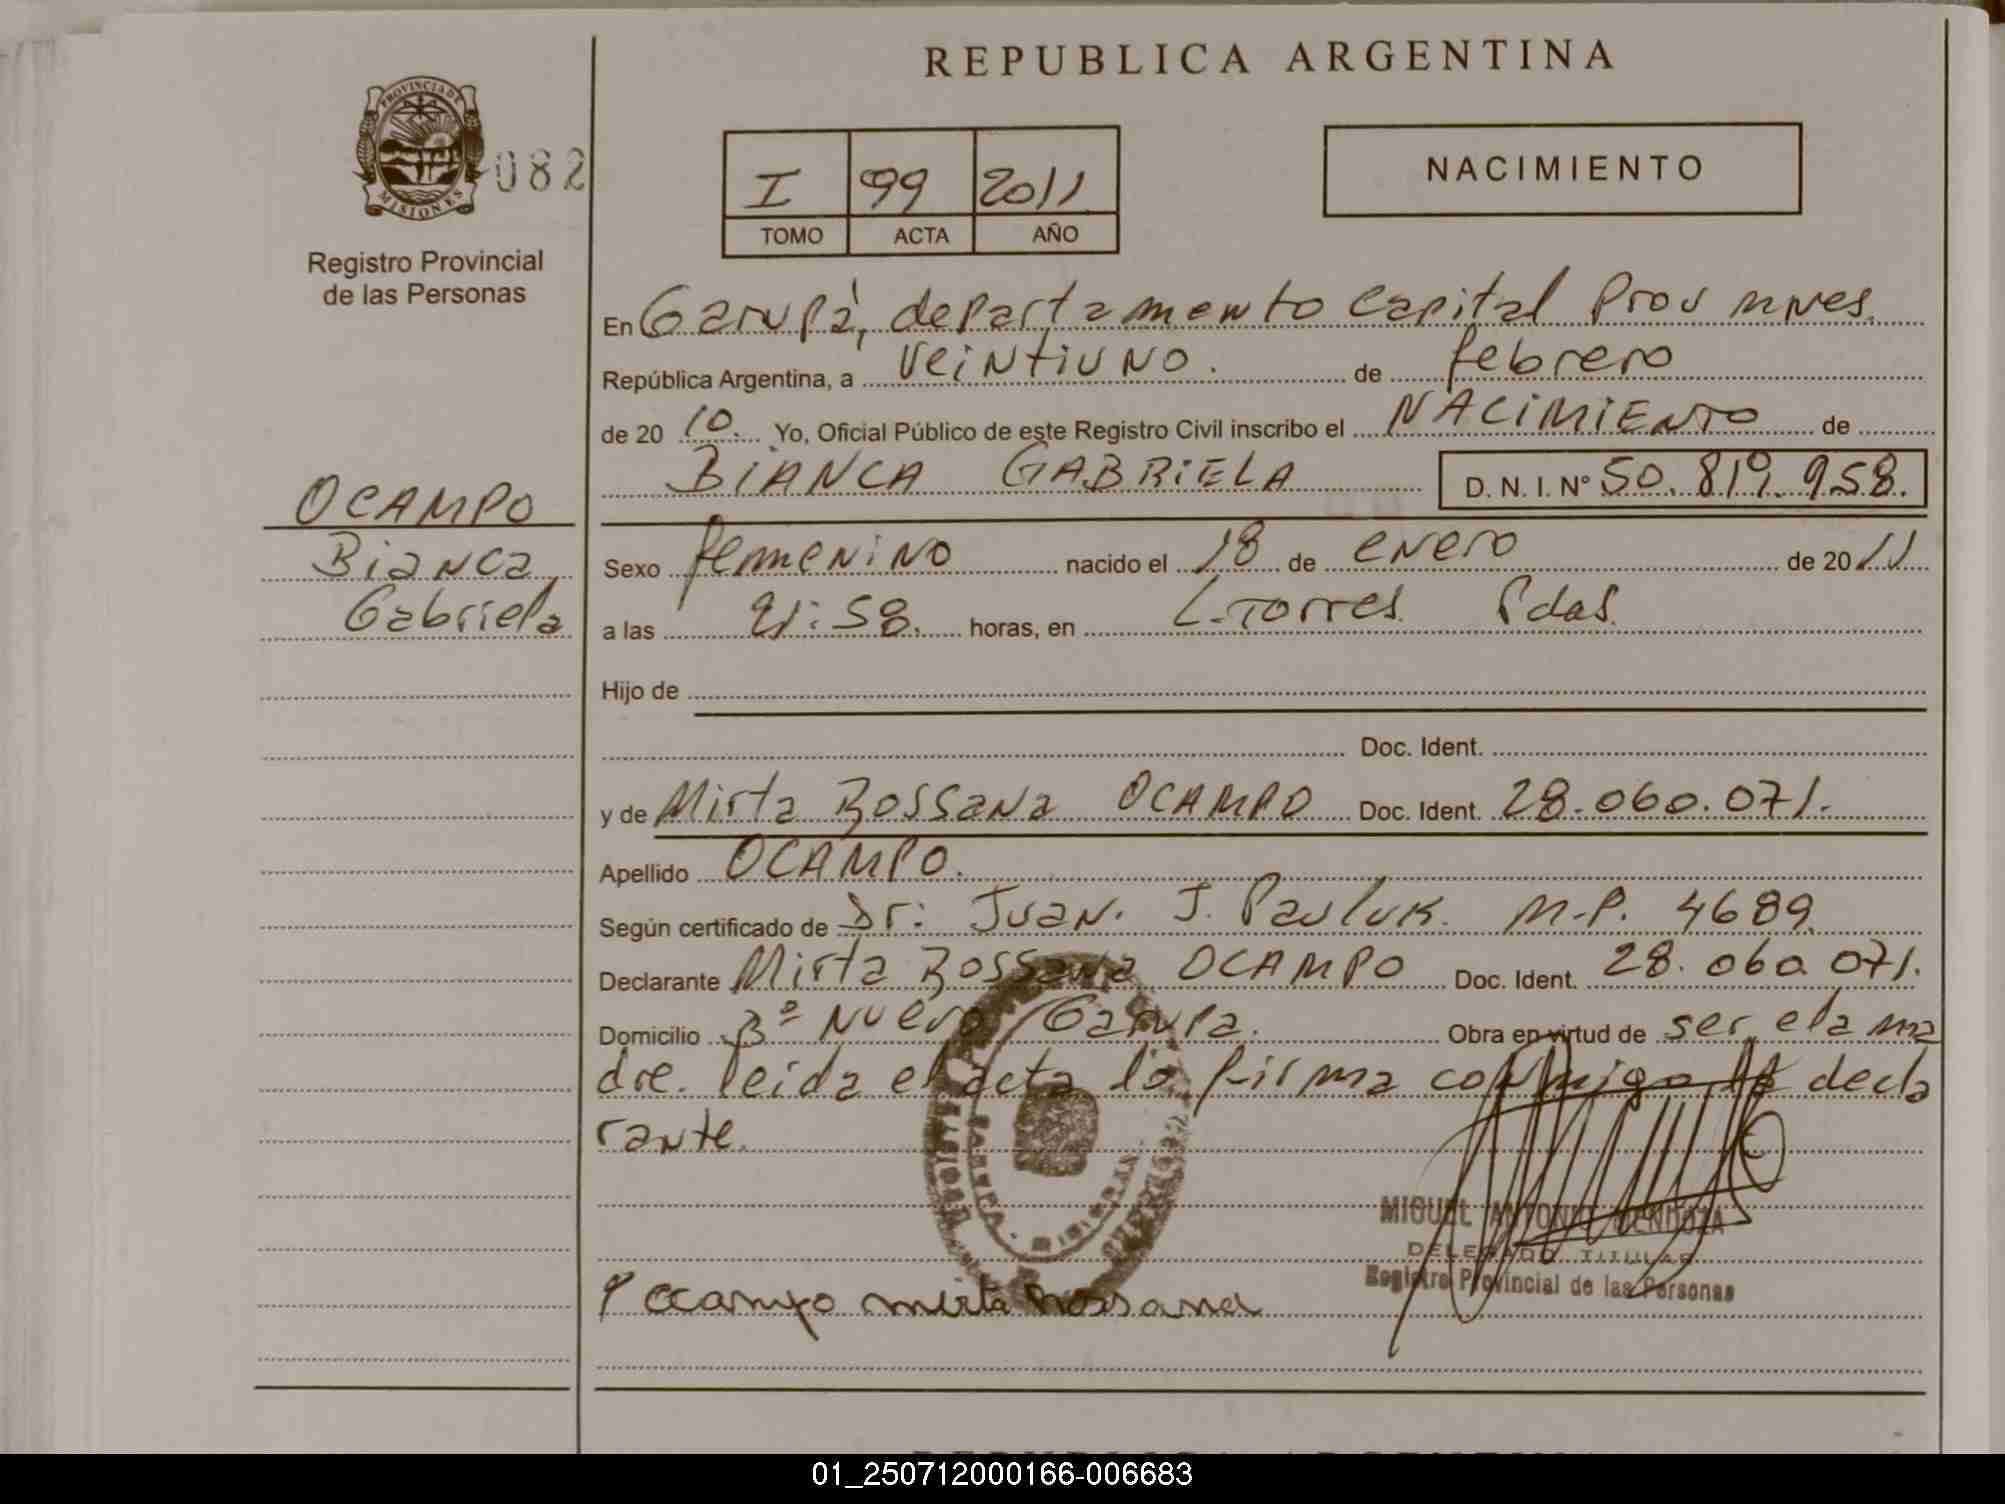 REPUBLICA ARGENTINA
PROVINCIA DE
MISIONES
082
Registro Provincial
de las Personas
I 99 2011
TOMO ACTA AÑO
NACIMIENTO
En Garupá, departamento Capital Prov mnes.
República Argentina, a veintiuno. de febrero
de 20 10. Yo, Oficial Público de este Registro Civil inscribo el NACIMIENTO de
BIANCA GABRIELA D. N. I. Nº 50.819.958.
OCAMPO
Bianca
Gabriela
Sexo femenino nacido el 18 de enero de 2011
a las 21:58. horas, en L. Torres Pdas.
Hijo de
Doc. Ident.
y de Mirta Rossana OCAMPO Doc. Ident. 28.060.071.
Apellido OCAMPO.
Según certificado de Dr: Juan. J. Pauluk. M.P. 4689.
Declarante Mirta Rossana OCAMPO Doc. Ident. 28.060.071.
Domicilio Bº Nuevo Garupa. Obra en virtud de ser ela ma
dre. leida el acta la firma conmigo la decla
rante.
MIGUEL ANTONIO MENDOZA
DELEGADO TITULAR
Registro Provincial de las Personas
ocampo mirta Rossana
01_250712000166-006683